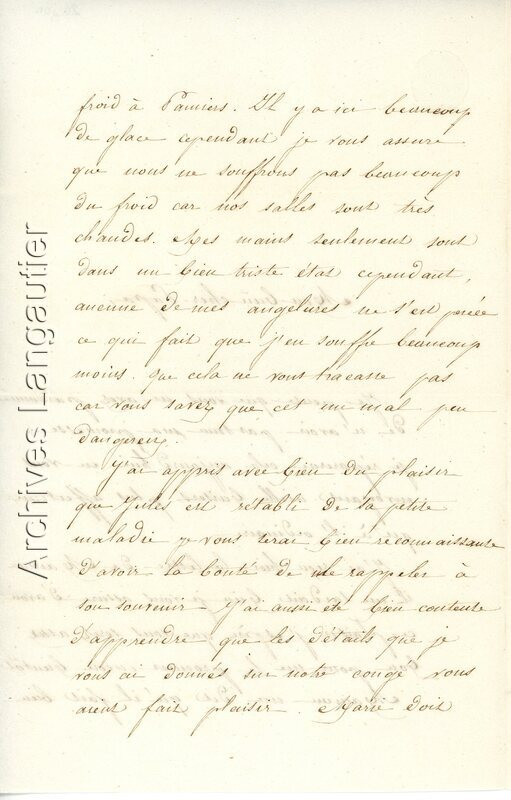 froid à Pamiers. Il y a ici beaucoup
de glace cependant je vous assure
que nous ne souffrons pas beaucoup
du froid car nos salles sont très
chaudes. Mes mains seulement sont
dans un bien triste état cependant,
aucune de mes angelures ne s'est percée
ce qui fait que j'en souffre beaucoup
moins. que cela ne vous tracasse pas
car vous savez que cet un mal peu
dangereux.
J'ai appris avec bien du plaisir
que Jules est rétabli de sa petite
maladie je vous serai bien reconnaissante
d'avoir la bonté de me rappeler à
son souvenir J'ai aussi été bien contente
d'apprendre que les détails que je
vous ai donnés sur notre congé vous
aient fait plaisir. Marie doit
Archives Langautier